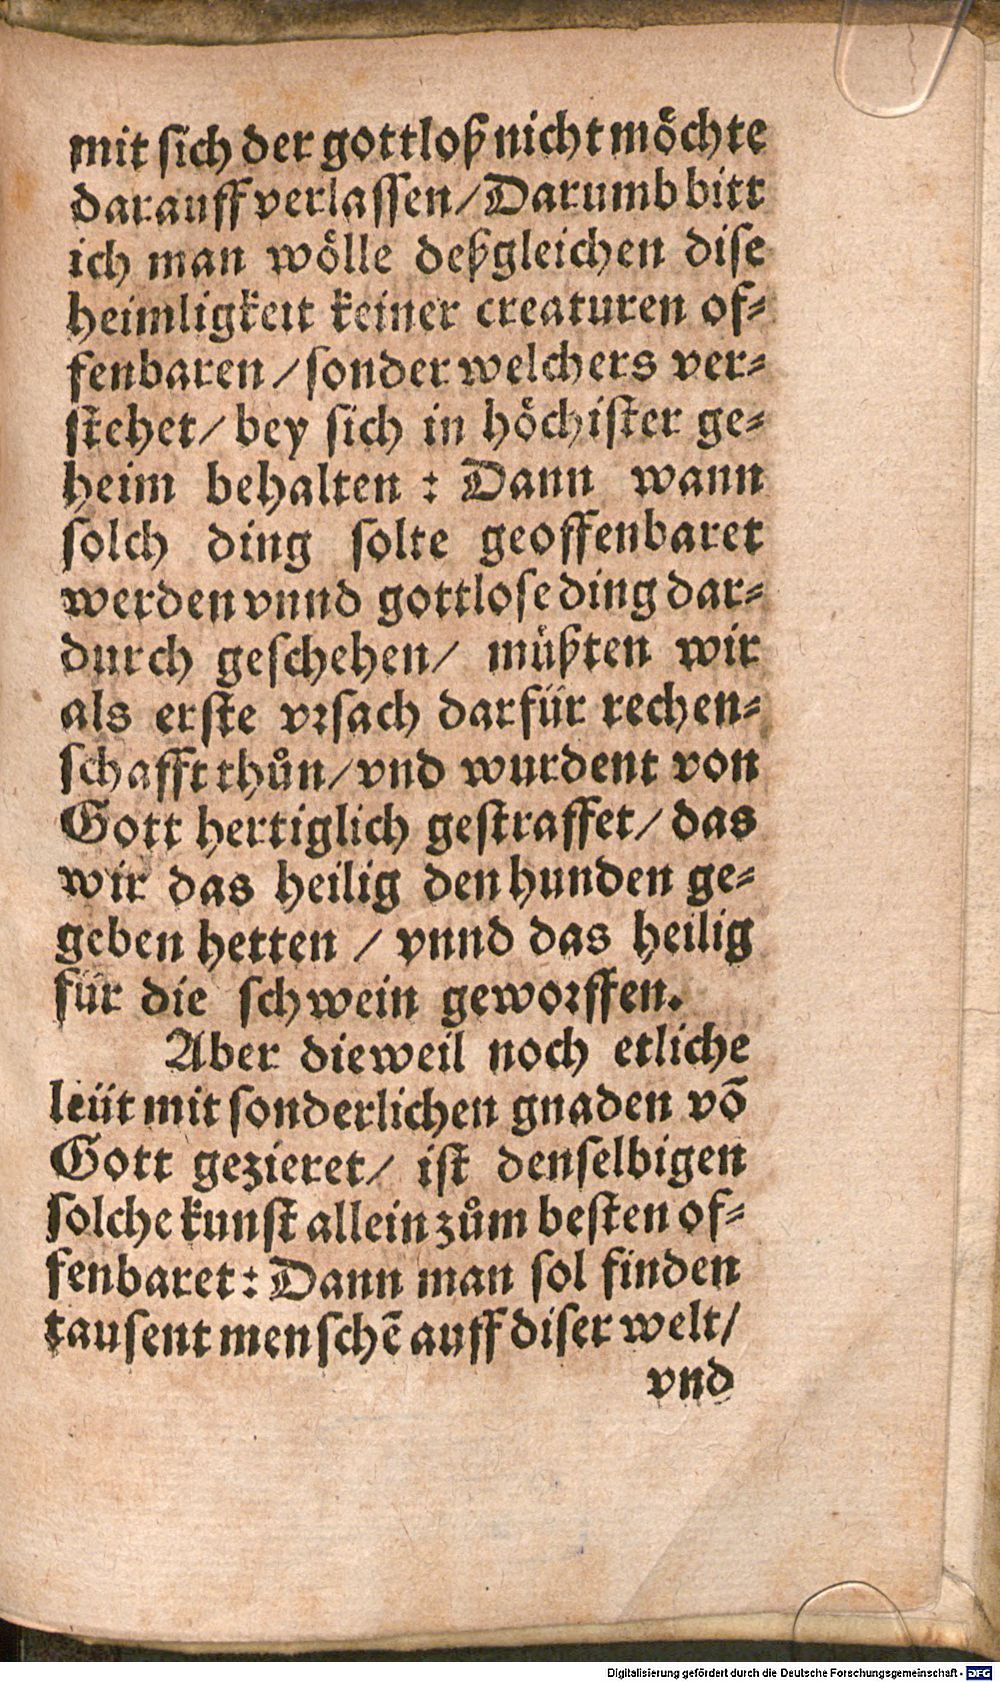 mit sich der gottloß nicht möchte
darauff verlassen / Darumb bitt
ich man wölle deßgleichen dise
heimligkeit keiner creaturen of⸗
fenbaren / sonder welchers ver⸗
stehet / bey sich in höchister ge⸗
heim behalten : Dann wann
solch ding solte geoffenbaret
werden vnnd gottlose ding dar⸗
durch geschehen / müßten wir
als erste vrsach darfür rechen⸗
schafft thůn / vnd wurdent von
Gott hertiglich gestraffet / das
wir das heilig den hunden ge⸗
geben hetten / vnnd das heilig
für die schwein geworffen.
Aber dieweil noch etliche
leüt mit sonderlichen gnaden võ
Gott gezieret / ist denselbigen
solche kunst allein zům besten of⸗
fenbaret : Dann man sol finden
tausent menschẽ auff diser welt /
vnd
Digitalisierung gefördert durch die Deutsche Forschungsgemeinschaft - DFG